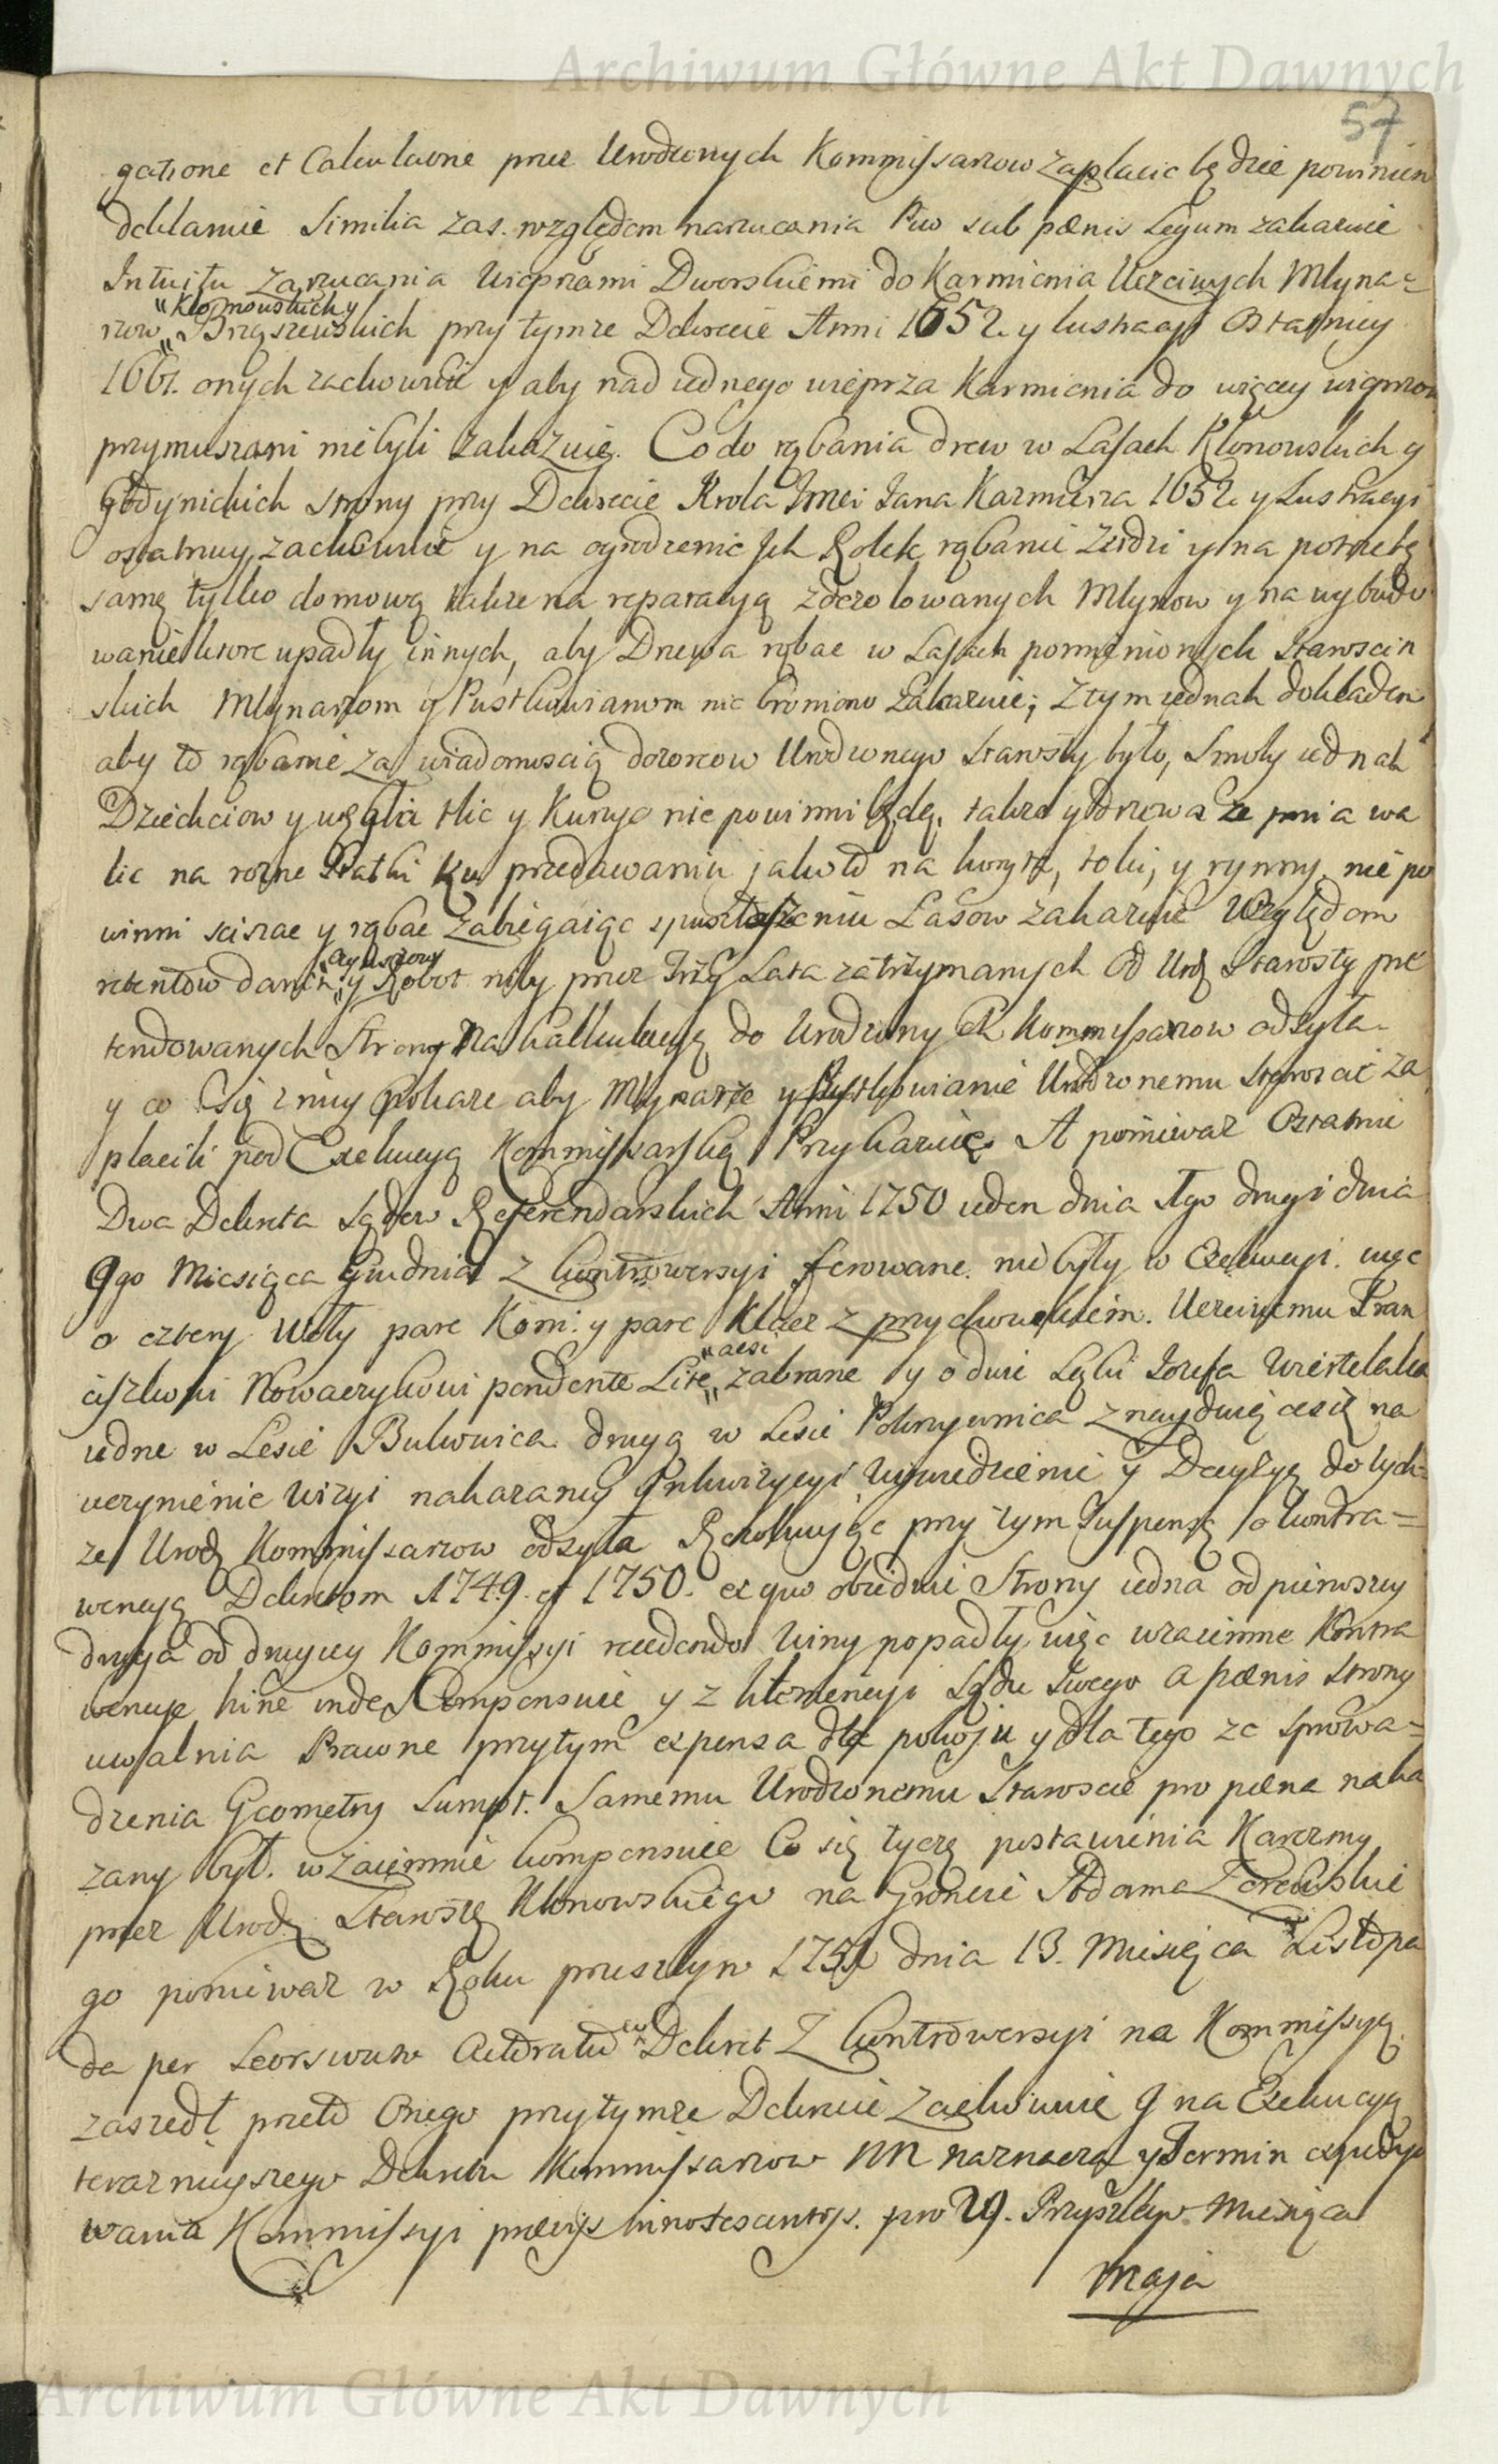 Archiwum Główne Akt Dawnych
57
gatione et Calculatione przez Urodzonych Kommissarzow zapłacic będzie powinien
deklaruie Similia zas względem narzucania Piw sub pænis Legum zakazuie
Intuitu zarzucania Wieprzami Dworskiemi do Karmienia Uczciwych Młyna=
"Klonowskich y
rzow Brąszewskich przy tymze Dekrecie Anni 1652. y lustracyi Ostatniey
1661. onych zachowuie y aby nad iednego wieprza Karmienia do więcey wieprzow
przymuszani nie byli zakazuie. Co do rąbania drew w Lasach Klonowskich y
strony przy Dekrecie Krola Jmci Jana Kazmierza 1652 y Lustracyi
ostatniey zachowuie y na ogrodzenie Ich Rolek rąbanie Zerdzi y na potrzebę
samę tylko domową także na reparacyą zdezolowanych Młynow y na wybudo
wanie ktore upadły innych, aby Drzewa rąbac w Lasach pomienionych Starościn
skich Młynarzom y Pustkowianom nie broniono zakazuie; Z tym iednak dokładem
aby to rąbanie za wiadomoscią dozorcow Urodzonego Starosty było, Smoły iednak
Dziechciow y węgla tlic y Kurzyc nie powinni będą, także y drzewa ze pnia wa
lic na rozne Statki ku przedawaniu jako to na koryta, y rynny, nie po
winni scisac y rąbac zabiegaiąc spustoszeniu Lasow zakazuie Względem
Czynszowy
retentow danin y Robot niby przez Trzy Lata zatrzymanych Od Urodz Starosty pre
tendowanych Strony Na kalkulacyą do Urodzonych Kommissarzow odsyła
y co się z niey pokaze aby Młynarze y Pustkowianie Urodzonemu Staroscie za
płacili pod Exekucyą Kommissarską Przykazuie. A poniewaz Ostatnie
Dwa Dekreta Sądow Referendarskich Anni 1750 ieden dnia 1go drugi dnia
9go Miesiąca Grudnia z kontrowersyi ferowane nie były w Exekucyi. więc
o cztery Woły pare Koni y pare Klacz z przychowkiem. Uczciwemu Fran
"acsi
ciszkowi Nowaczykowi pendente Lite zabrane y o dwie Łąki Jozefa
iedne w Lesie Bukowica drugą w Lesie Pokrzywnica znayduiącesię na
uczynienie Wizyi nakazaney Inkwizycyi wywiedzenie y Decyzyą do tych=
ze Urodz Kommissarzow odsyła Rezolwuiąc przy tym Suspensę o kontra=
wencyą Dekretom 1749. et 1750. ex quo obiedwie Strony iedna od pierwszey
druga od drugiey Kommissyi recedendo Winy popadły, więc wzaiemne Kontra
wencye hinc inde Compensuie y z klemencyi Sądu Swego a pænis Strony
uwalnia Prawne przytym expensa dla pokoju y dla tego ze sprowa=
dzenia Geometry Sumpt. Samemu Urodzonemu Staroscie pro pæna naka
zany był. wzaiemnie kompensuie Co się tycze postawienia Karczmy
przez Urodz. Starostę Klonowskiego na Gruncie Adama
go poniewaz w Roku przeszłym 1751 dnia 13. Miesiąca Listopa
da per Seorsivum Dekret z kontrowersyi na Kommissyą
zaszedł przeto Onego przytymze Dekrecie zachowuie y na Exekucyą
teraznieyszego Dekretu Kommissarzow NN naznacza y Termin expedyo
wania Kommissyi præviis innotescentiis. pro 29. Przyszłego Miesiąca
Maja
Archiwum Główne Akt Dawnych